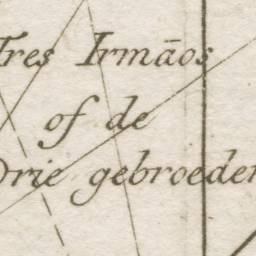 Tres Irmãos
of de
Drie gebroeder